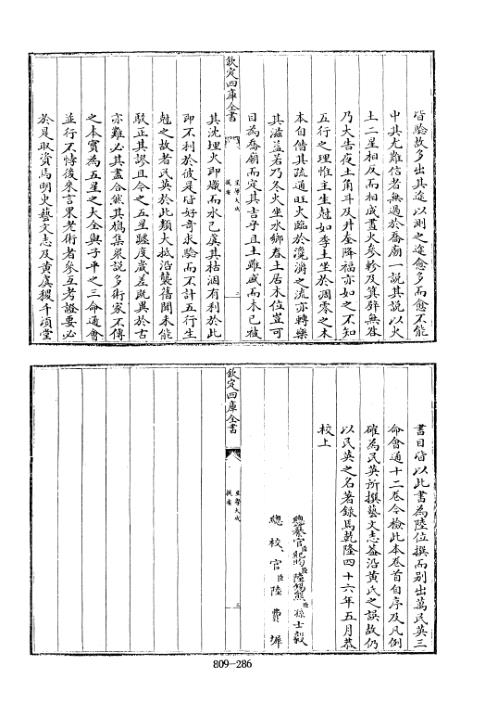 皆驗故多出其途以測之途愈多而愈不能
中其尤難信者無過於喬廟一說其說以火
土二星相反而相成晝火參軫及箕壁無咎
乃大吉夜土角斗及井奎降福亦如之不知
五行之理惟主生尅如李土坐於凋零之木
本自借其疏通旺火臨於濟濟之流亦轉樂
其滋益若乃冬火坐水鄉春土居木位豈可
目為喬廟而定其吉乎且土雖盛而木已被
其沈埋火即熾而水已虞其枯涸有利於此
即不利於彼是皆好奇求驗而不計五行生
尅之故者民英於此類大抵沿襲舊聞未能
駁正其謬且今之五星躔度歲差既與於古
亦難必其盡合然其鳩集衆說多術家不傳
之本實為五星之大全與子平之三命通會
並行不悖後來言果老術者參互考證要必
於是取資焉明史藝文志及黃虞稷千頃堂
欽定四庫全書
星學大成
提要
二
書目皆以此書為陸位撰而別出萬民英三
命會通十二卷今檢此本卷首自序及凡例
確為民英所撰藝文志蓋沿黃氏之誤故仍
以民英之名著錄焉乾隆四十六年五月恭
校上
總纂官臣紀昀臣陸錫熊臣孫士毅
總校官臣陸費墀
欽定四庫全書
星學大成
提要
三
809-286